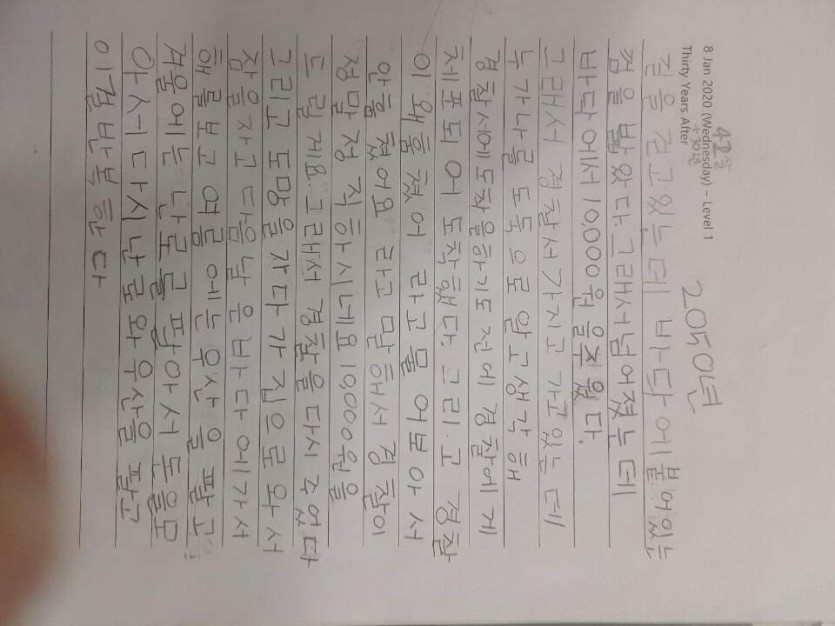 8 Jan 2020 (Wednesday) – Level 1
42살
+30년
Thirty Years After
2050년
길을 걷고있는데 바닥에붙어있는
껌을 밟았다. 그래서넘어졌는데
바닥에서 10,000원을주웠다.
그래서 경찰서가지고 가고있는데
누가나를 도둑으로 알고생각해
경찰서에도착을하기도 전에 경찰에게
체포되어 도착했다. 그리고 경찰
이 왜훔쳤어 라고물어보아서
안훔쳤어요 라고 말해서 경찰이
정말정직하시네요 10,000원을
드릴게요. 그래서 경찰을다시 주었다
그리고 도망을 가다가 집으로와서
잠을자고 다음날은 바다에가서
해를보고 여름에는우산을팔고
겨울에는 난로를팔아서 돈을모
아서 다시난로와 우산을 팔고
이걸반복한다